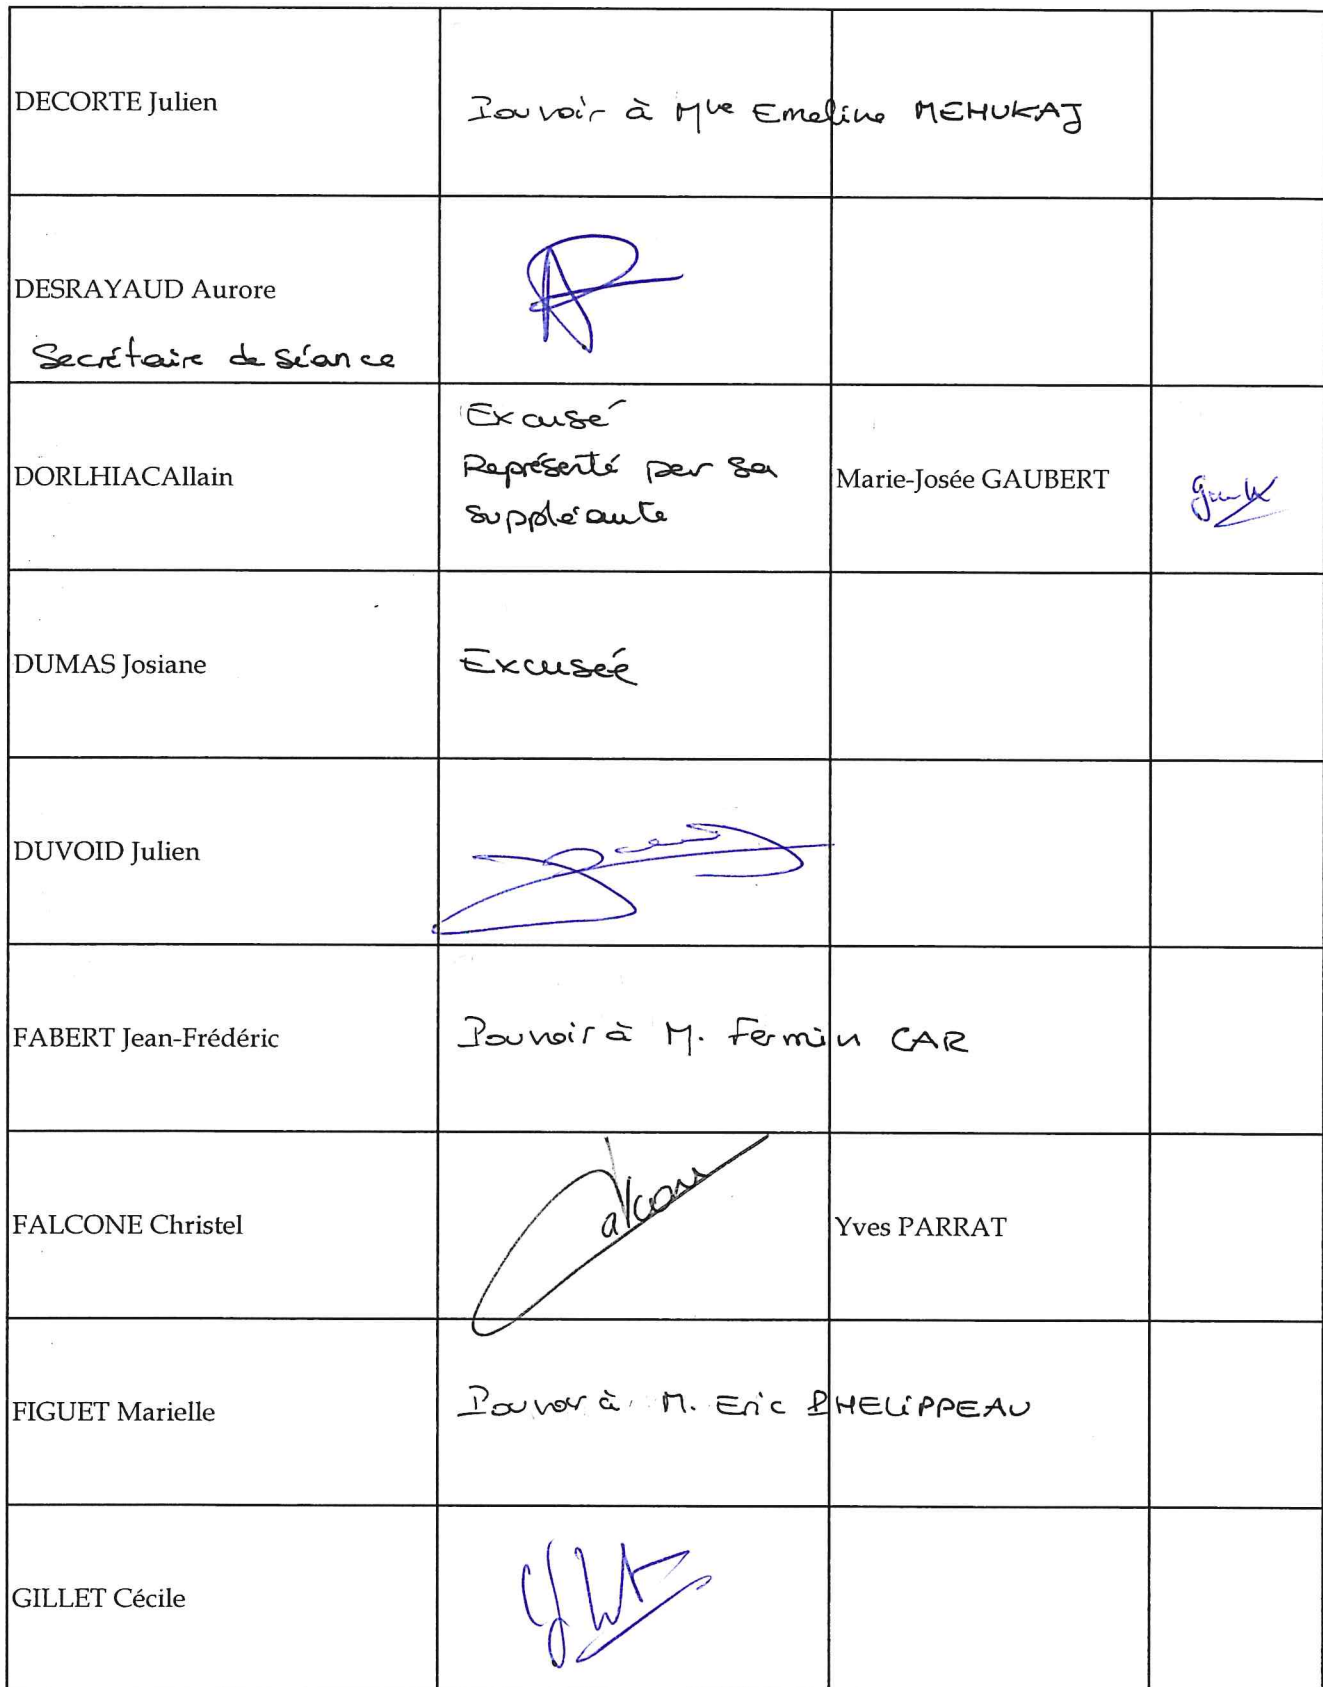 DECORTE Julien
Pouvoir à Mme Emeline MEHUKAJ
DESRAYAUD Aurore
Secrétaire de séance
DORLHIACAllain
Excusé
Représenté par sa
suppléante
Marie-Josée GAUBERT
DUMAS Josiane
Excusée
DUVOID Julien
FABERT Jean-Frédéric
Pouvoir à M. Fermin CAR
FALCONE Christel
Yves PARRAT
FIGUET Marielle
Pouvoir à M. Eric PHELIPPEAU
GILLET Cécile